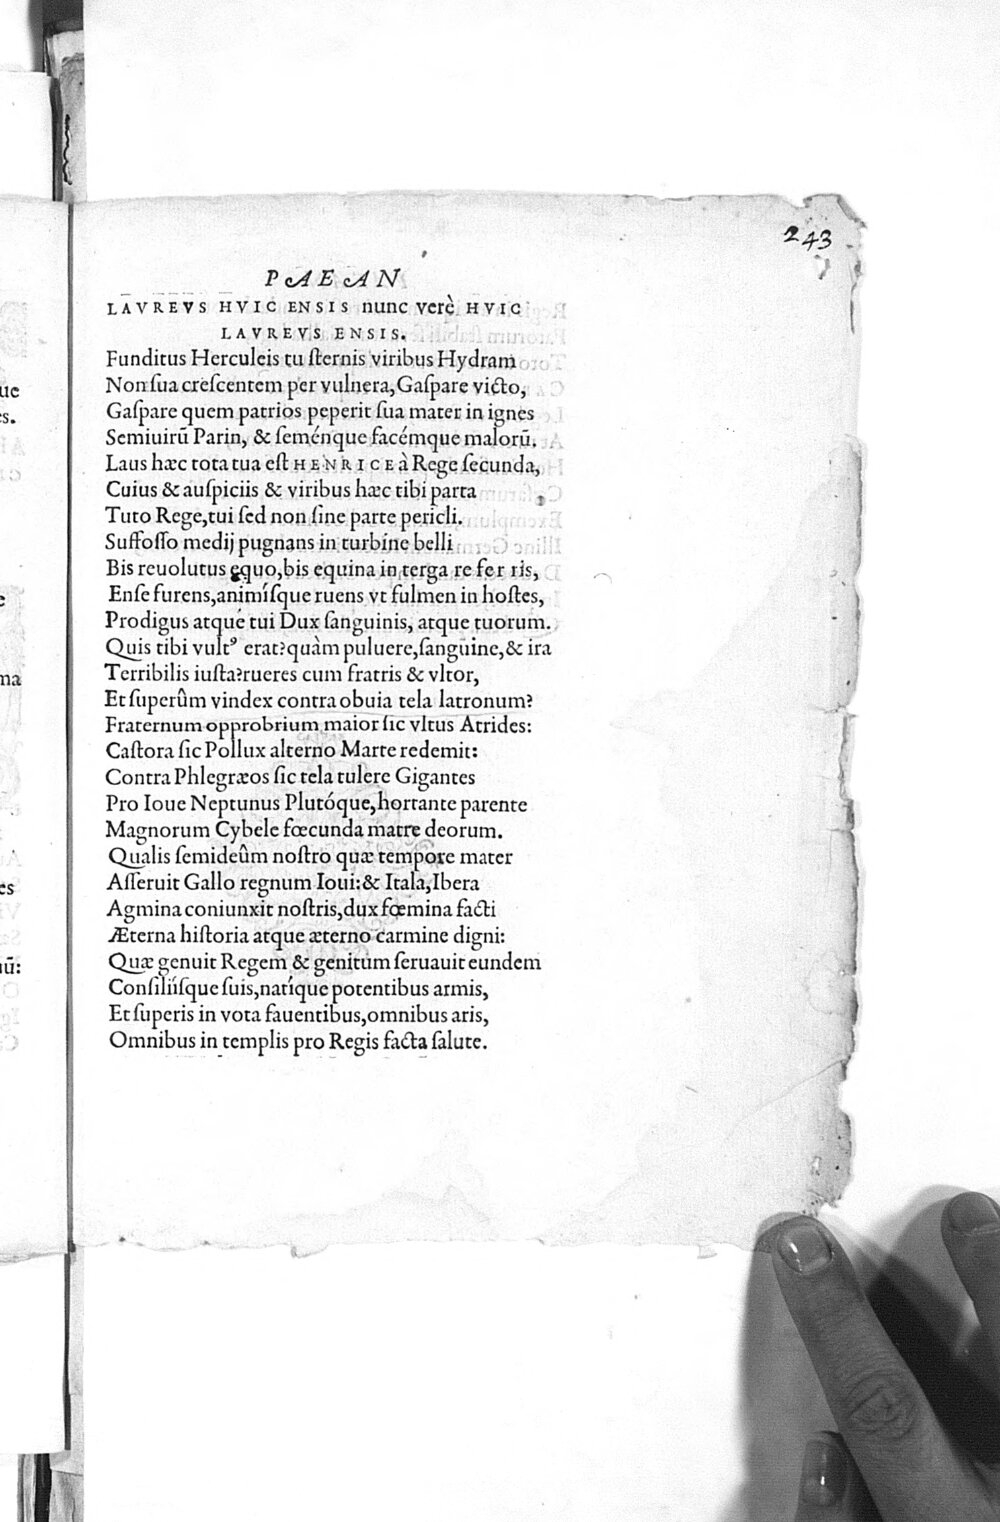 243
PAEAN
LAVREVS HVIC ENSIS nunc verè HVIC
LAVREVS ENSIS.
Funditus Herculeis tu ſternis viribus Hydram
Non ſua creſcentem per vulnera, Gaſpare victo,
Gaſpare quem patrios peperit ſua mater in ignes
Semiuirū Parin, & ſeménque facémque malorū.
Laus hæc tota tua eſt HENRICE à Rege ſecunda,
Cuius & auſpiciis & viribus hæc tibi parta
Tuto Rege, tui ſed non ſine parte pericli.
Suffoſſo medij pugnans in turbine belli
Bis reuolutus equo, bis equina in terga referris,
Enſe furens, animíſque ruens vt fulmen in hoſtes,
Prodigus atque tui Dux ſanguinis, atque tuorum.
Quis tibi vultꝰ erat? quàm puluere, ſanguine, & ira
Terribilis iuſta? rueres cum fratris & vltor,
Et ſuperûm vindex contra obuia tela latronum?
Fraternum opprobrium maior ſic vltus Atrides:
Caſtora ſic Pollux alterno Marte redemit:
Contra Phlegræos ſic tela tulere Gigantes
Pro Ioue Neptunus Plutóque, hortante parente
Magnorum Cybele fœcunda matre deorum.
Qualis ſemideûm noſtro quæ tempore mater
Aſſeruit Gallo regnum Ioui: & Itala, Ibera
Agmina coniunxit noſtris, dux fœmina facti
Æterna hiſtoria atque æterno carmine digni:
Quæ genuit Regem & genitum ſeruauit eundem
Conſiliíſque ſuis, natíque potentibus armis,
Et ſuperis in vota fauentibus, omnibus aris,
Omnibus in templis pro Regis facta ſalute.